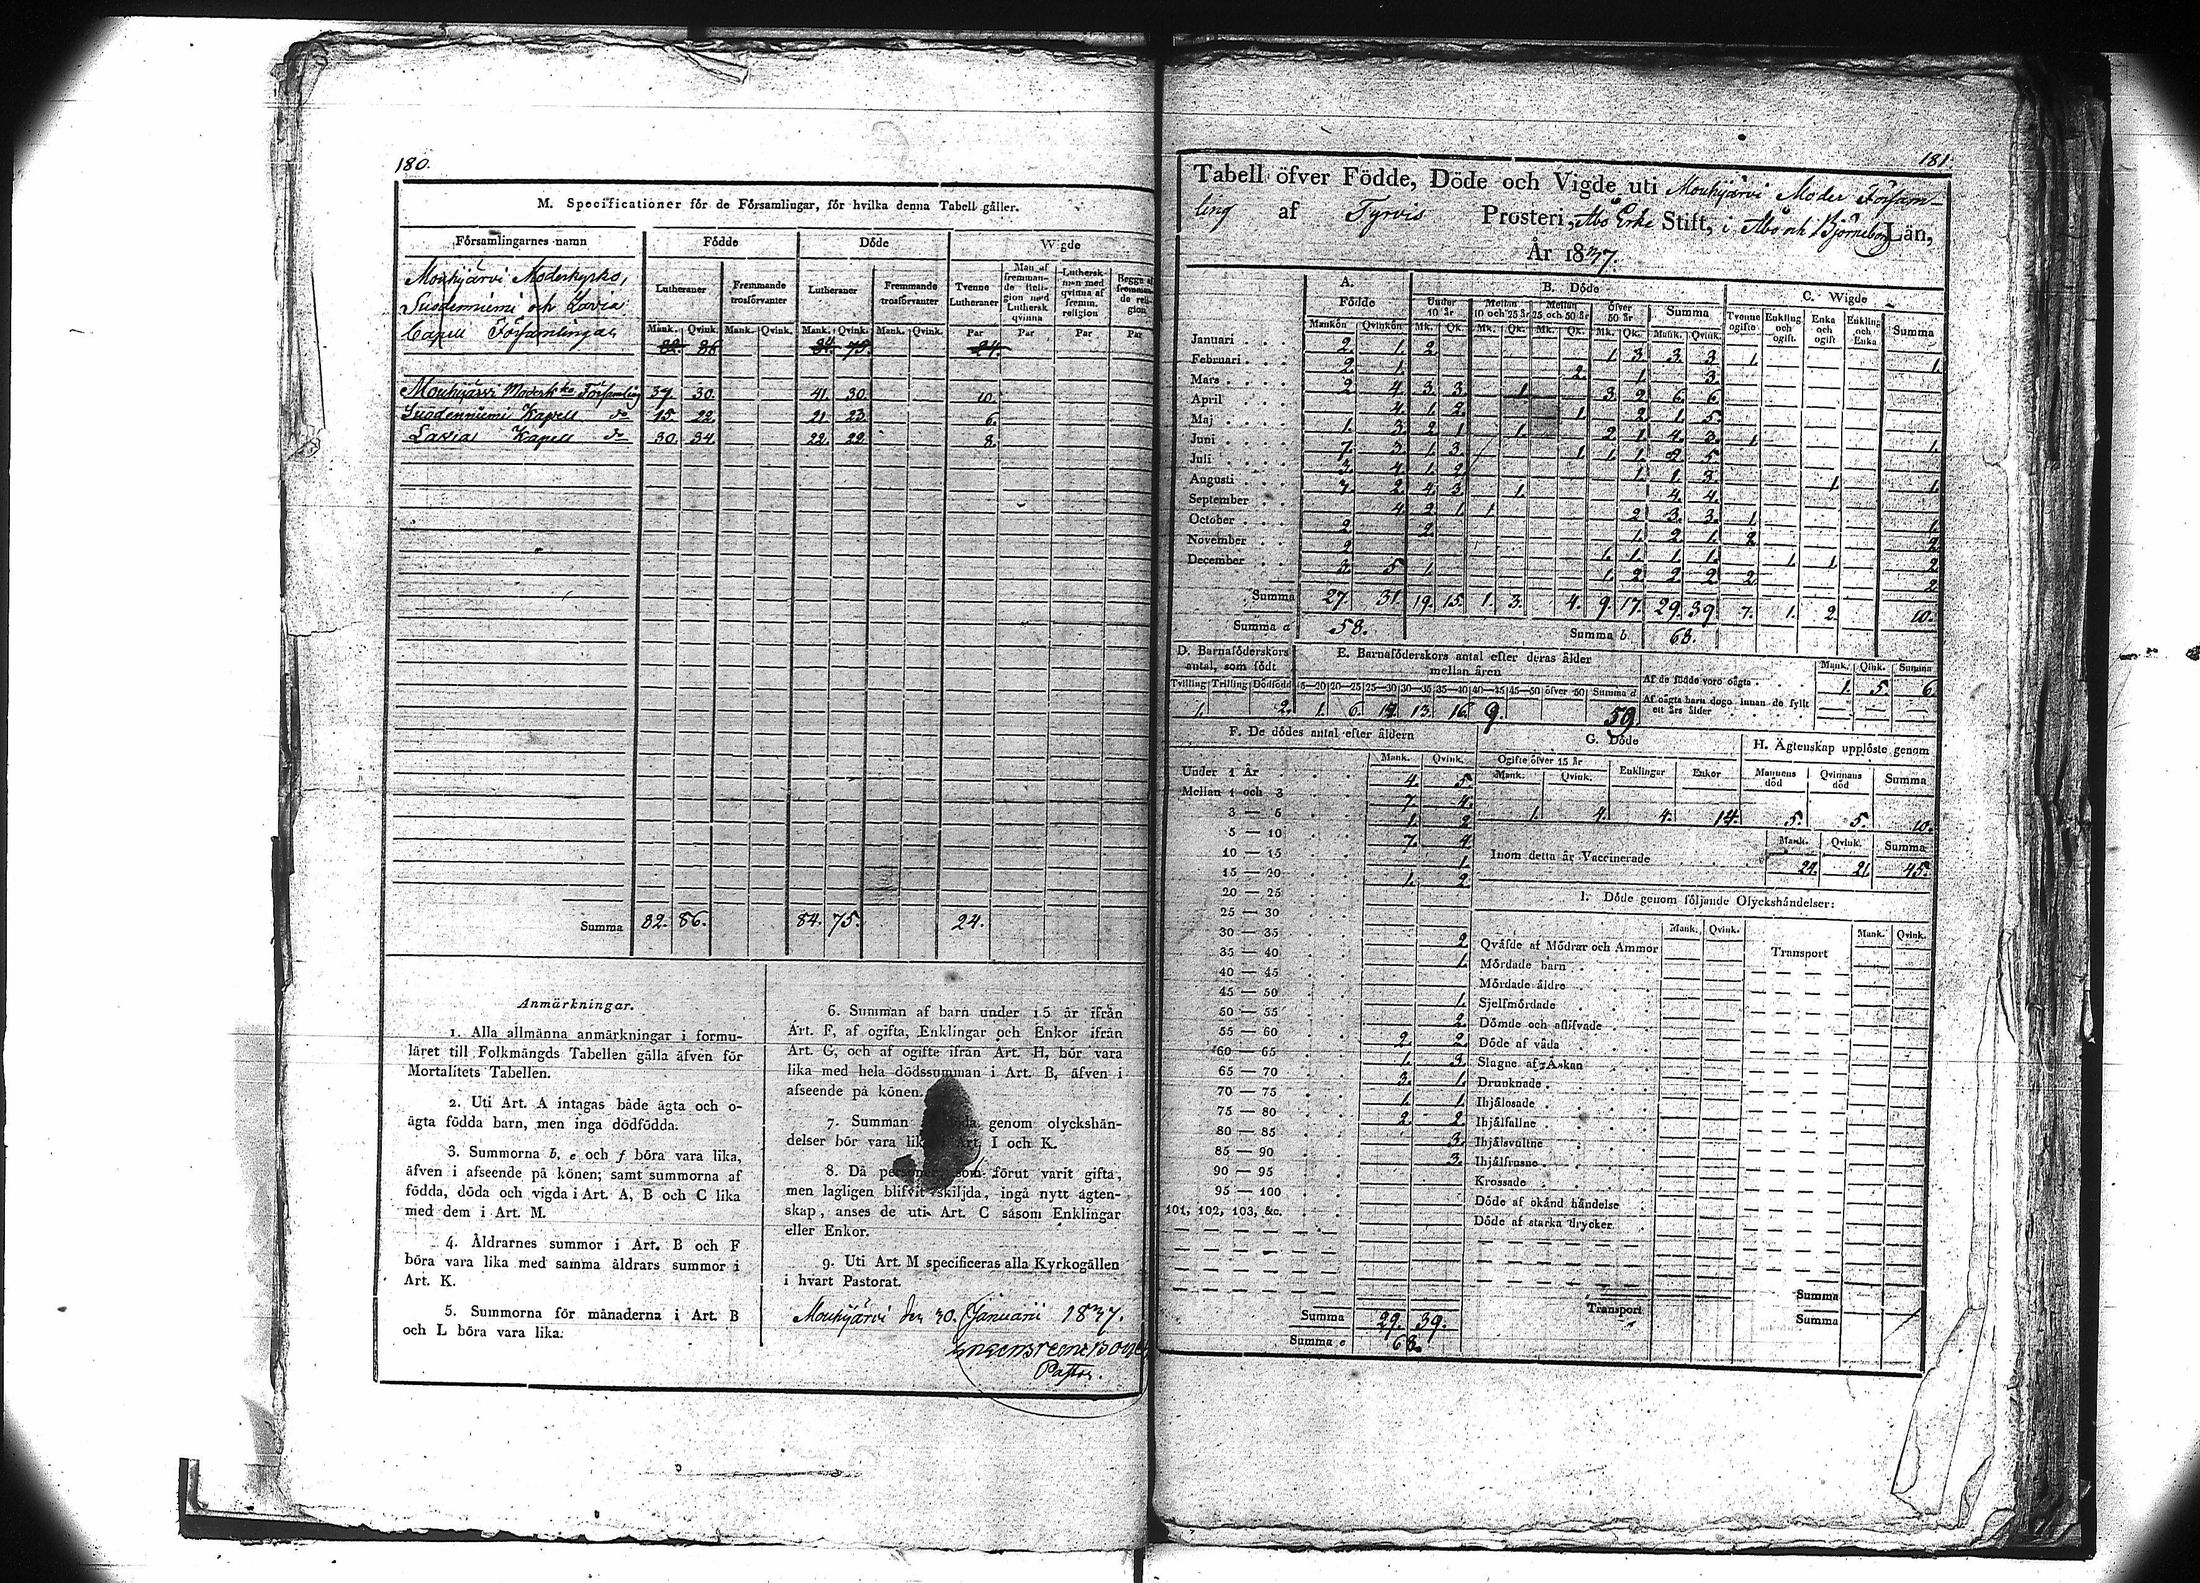 180.
M. Specificationer för de Församlingar, för hvilka denna Tabell gäller.
Församlingarnes namn Födde Döde Wigde
Lutheraner Fremmande trosförvanter Lutheraner Fremmande trosförvanter Tvenne Lutheraner Man af fremmande Religion med Luthersk qvinna Luthersk man med qvinna af fremm. religion Begge af fremmande religion
Mank. Qvink. Mank. Qvink. Mank. Qvink. Mank. Qvink. Par Par Par Par
Mouhijärvi Moderkyrko,
Suodenniemi och Lavia
Capell Församlingar 82. 86. 84. 75. 24.
Mouhijärvi Moderk:ko Församling 37 30. 41. 30. 10.
Suodenniemi Kapell do 15 22. 21 23. 6.
Lavia Kapell do 30. 34. 22. 22. 8.
Summa 82. 86. 84. 75. 24.
Anmärkningar.
1. Alla allmänna anmärkningar i formu-
läret till Folkmängds Tabellen gälla äfven för
Mortalitets Tabellen.
2. Uti Art. A intagas både ägta och o-
ägta födda barn, men inga dödfödda.
3. Summorna b, e och f böra vara lika,
äfven i afseende på könen; samt summorna af
födda, döda och vigda i Art. A, B och C lika
med dem i Art. M.
4. Åldrarnes summor i Art. B och F
böra vara lika med samma åldrars summor i
Art. K.
5. Summorna för månaderna i Art. B
och L böra vara lika.
6. Summan af barn under 15 år ifrån
Art. F, af ogifta, Enklingar och Enkor ifrån
Art. G, och af ogifte ifrån Art. H, bör vara
lika med hela dödssumman i Art. B, äfven i
afseende på könen.
7. Summan genom olyckshän-
delser bör vara lik Art. I och K.
8. Då personer som förut varit gifta,
men lagligen blifvit skiljda, ingå nytt ägten-
skap, anses de uti Art. C såsom Enklingar
eller Enkor.
9. Uti Art. M specificeras alla Kyrkogällen
i hvart Pastorat.
Mouhijärvi den 30. Januarii 1837.
Pastor.
181.
Tabell öfver Födde, Döde och Vigde uti Mouhijärvi Moder Församling
af Tyrvis Prosteri, Åbo Erke Stift, i Åbo och Björneborgs Län,
År 1837.
A. Födde B. Döde C. Wigde
Under 10 år Mellan 10 och 25 år Mellan 25 och 50 år öfver 50 år Summa Tvenne ogifte Enkling och ogift. Enka och ogift Enkling och Enka Summa
Mankön Qvinkön Mk. Qk. Mk. Qk. Mk. Qk. Mk. Qk. Mank. Qvink.
Januari 2. 1. 2. 1. 3. 3. 3. 1. 1.
Februari 2. 1. 2. 1. 3.
Mars 2 4. 3. 3. 1. 3 2. 6. 6
April 4. 1. 2. 1. 2. 1. 5.
Maj 1. 3. 2. 1 1. 2. 1. 4. 3. 1. 1.
Juni 7. 3. 1. 3. 1. 1. 1. 2 5
Juli 3. 4. 1. 2. 1. 1. 3. 1. 1.
Augusti 7. 2. 4. 3. 1. 4. 4.
September 4. 2. 1. 1 2. 3. 3. 1. 1.
October 2. 2. 1. 2. 1. 2. 2.
November 2. 1. 1. 1. 1. 1. 1. 2.
December 3. 5. 1. 1. 2. 2 2. 2. 2.
Summa 27. 31. 19. 15. 1. 3. 4. 9. 17. 29. 39. 7. 1. 2. 10.
Summa a 58. Summa b 68.
D. Barnaföderskors antal, som födt
Tvilling Trilling Dödfödd
1. 2.
E. Barnaföderskors antal efter deras ålder mellan åren
15—20 20—25 25—30 30—35 35—40 40—45 45—50 öfver 50 Summa d
1. 6. 13. 16. 9. 59.
Mank. Qink. Summa
Af de födde voro oägta 1. 5. 6.
Af oägta barn dogo innan de fyllt ett års ålder
F. De dödes antal efter åldern
Mank. Qvink.
Under 1 År 4. 5.
Mellan 1 och 3 7. 4.
3 — 5 1. 2
5 — 10 7. 4
10 — 15 1.
15 — 20 1. 2.
20 — 25
25 — 30
30 — 35 2.
35 — 40 1.
40 — 45
45 — 50 1.
50 — 55 2.
55 — 60 2. 2
60 — 65 1. 3.
65 — 70 3. 1.
70 — 75 1. 1
75 — 80 2. 2
80 — 85 3.
85 — 90 3.
90 — 95
95 — 100
101, 102, 103, &c.
Summa 29. 39.
Summa e 68.
G. Döde
Ogifte öfver 15 år Enklingar Enkor
Mank. Qvink.
1. 4. 4. 14.
H. Ägtenskap upplöste genom
Mannens död Qvinnans död Summa
5. 5. 10.
Mank. Qvink. Summa
Inom detta år Vaccinerade 24. 21. 45.
I. Döde genom följande Olyckshändelser:
Mank. Qvink. Transport Mank. Qvink.
Qväfde af Mödrar och Ammor
Mördade barn
Mördade äldre
Sjelfmördade
Dömde och aflifvade
Döde af våda
Slagne af Åskan
Drunknade
Ihjälosade
Ihjälfallne
Ihjälsvultne
Ihjälfrusne
Krossade
Döde af okänd händelse
Döde af starka drycker
Transport
Summa
Summa